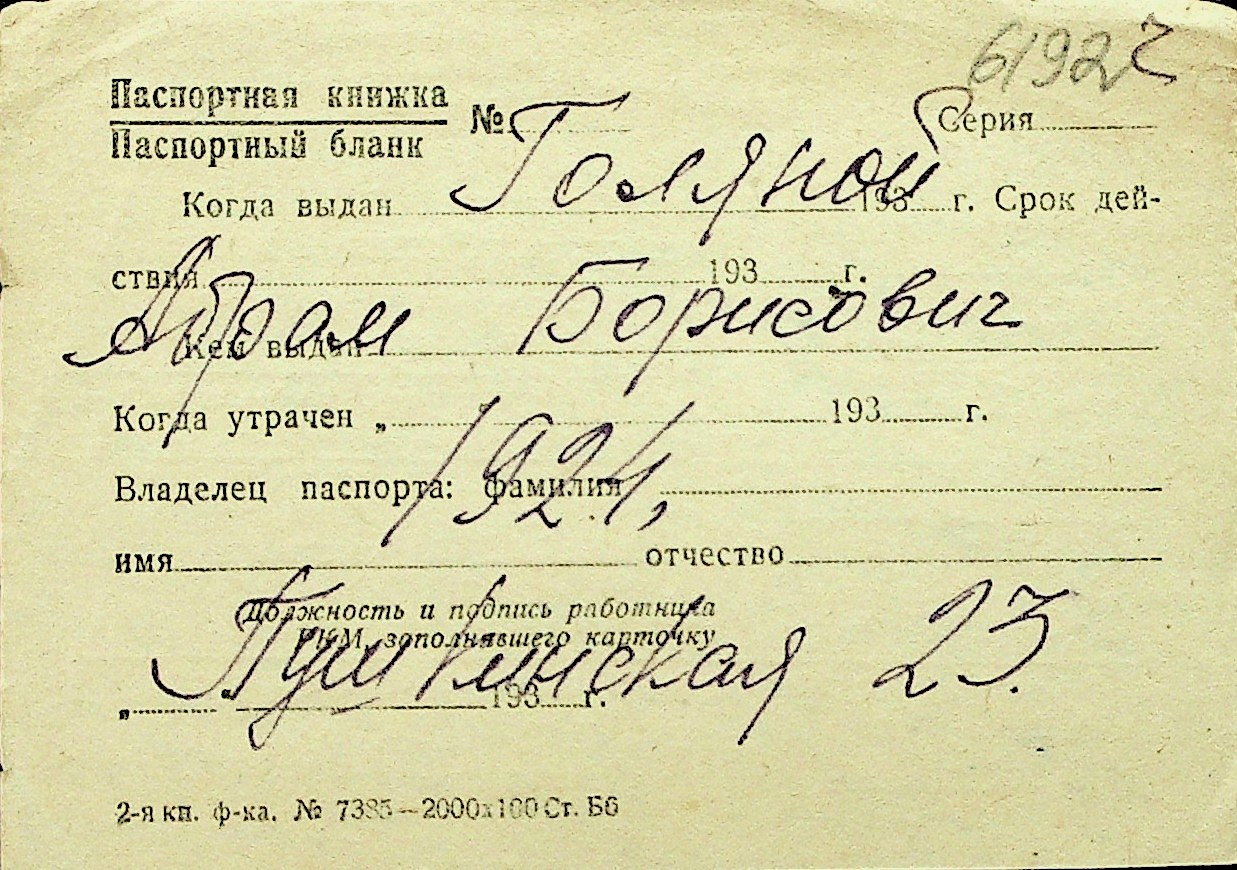 6192 ч
Паспортная книжка
Паспортный бланк
№ Серия
Голяной
Когда выдан 193 г. Срок дей-
ствия 193 г.
Абрам Борисович
Кем выдан
Когда утрачен „ 193 г.
1924,
Владелец паспорта: фамилия
имя отчество
Должность и подпись работника
РКМ, заполнявшего карточку
Пушкинская 23.
„ 193 г.
2-я кн. ф-ка. № 7385—2000х100 Ст. Б6